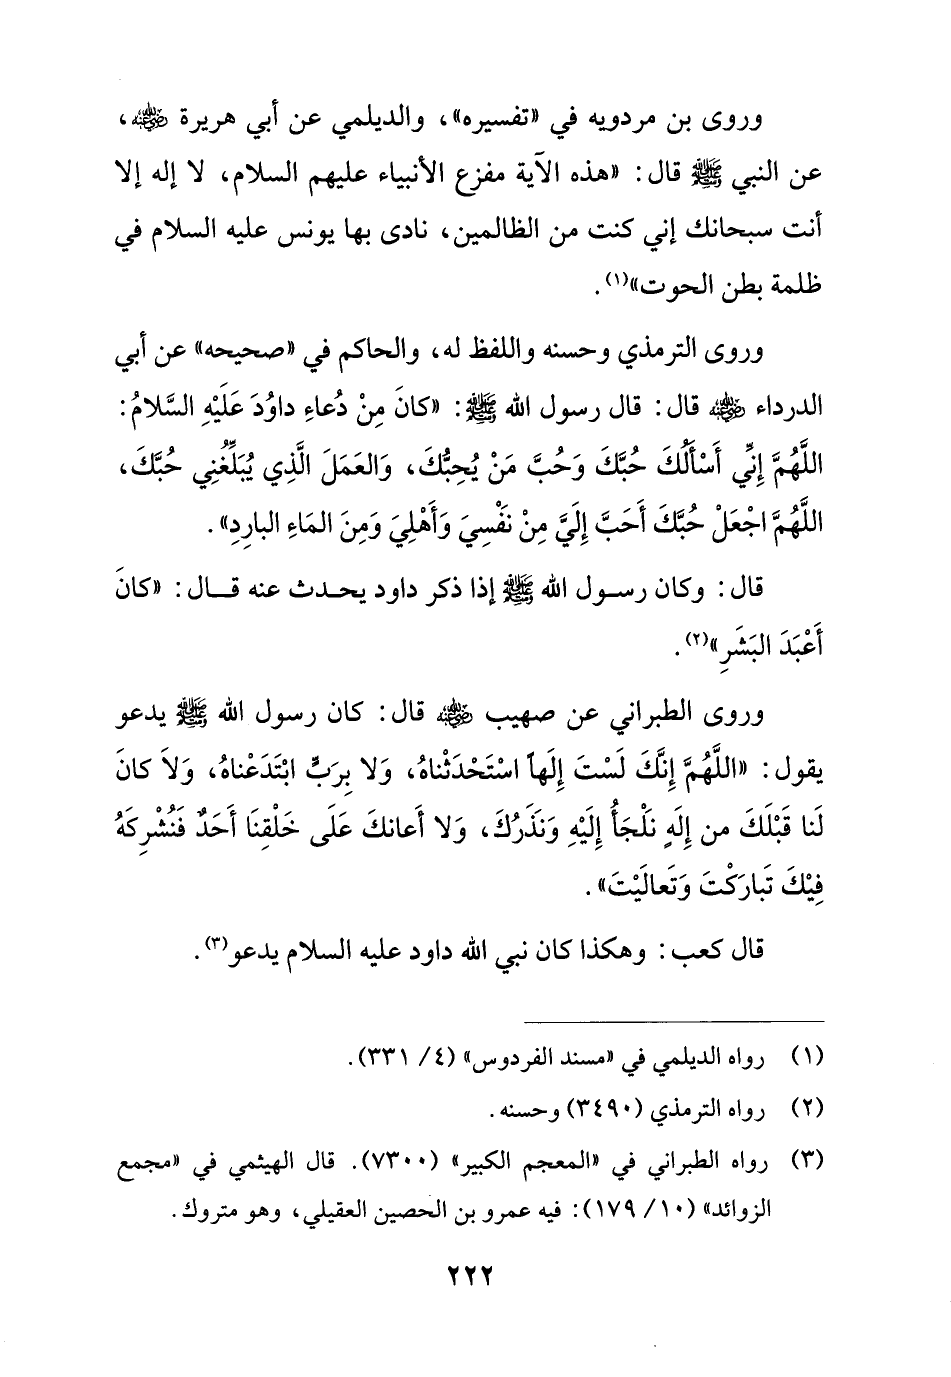 وروى بن مردويه في «تفسيره»، والديلمي عن أبي هريرة رضي الله عنه،
عن النبي ﷺ قال: «هذه الآية مفزع الأنبياء عليهم السلام، لا إله إلا
أنت سبحانك إني كنت من الظالمين، نادى بها يونس عليه السلام في
ظلمة بطن الحوت»(١).
وروى الترمذي وحسنه واللفظ له، والحاكم في «صحيحه» عن أبي
الدرداء رضي الله عنه قال: قال رسول الله ﷺ: «كانَ مِنْ دُعاءِ داوُدَ عَلَيْهِ السَّلامُ:
اللَّهُمَّ إِنِّي أَسْأَلُكَ حُبَّكَ وَحُبَّ مَنْ يُحِبُّكَ، وَالعَمَلَ الَّذِي يُبَلِّغُنِي حُبَّكَ،
اللَّهُمَّ اجْعَلْ حُبَّكَ أَحَبَّ إِلَيَّ مِنْ نَفْسِيَ وَأَهْلِيَ وَمِنَ المَاءِ البارِدِ».
قال: وكان رسول الله ﷺ إذا ذكر داود يحدث عنه قال: «كانَ
أَعْبَدَ البَشَرِ»(٢).
وروى الطبراني عن صهيب رضي الله عنه قال: كان رسول الله ﷺ يدعو
يقول: «اللَّهُمَّ إِنَّكَ لَسْتَ إِلَهاً اسْتَحْدَثْناهُ، وَلا بِرَبٍّ ابْتَدَعْناهُ، وَلاَ كانَ
لَنا قَبْلَكَ من إِلَهٍ نَلْجَأُ إِلَيْهِ وَنَذَرُكَ، وَلا أَعانكَ عَلَى خَلْقِنَا أَحَدٌ فَنُشْرِكَهُ
فِيْكَ تَبارَكْتَ وَتَعالَيْتَ».
قال كعب: وهكذا كان نبي الله داود عليه السلام يدعو(٣).
(١) رواه الديلمي في «مسند الفردوس» (٤/ ٣٣١).
(٢) رواه الترمذي (٣٤٩٠) وحسنه.
(٣) رواه الطبراني في «المعجم الكبير» (٧٣٠٠). قال الهيثمي في «مجمع
الزوائد» (١٠/ ١٧٩): فيه عمرو بن الحصين العقيلي، وهو متروك.
٢٢٢